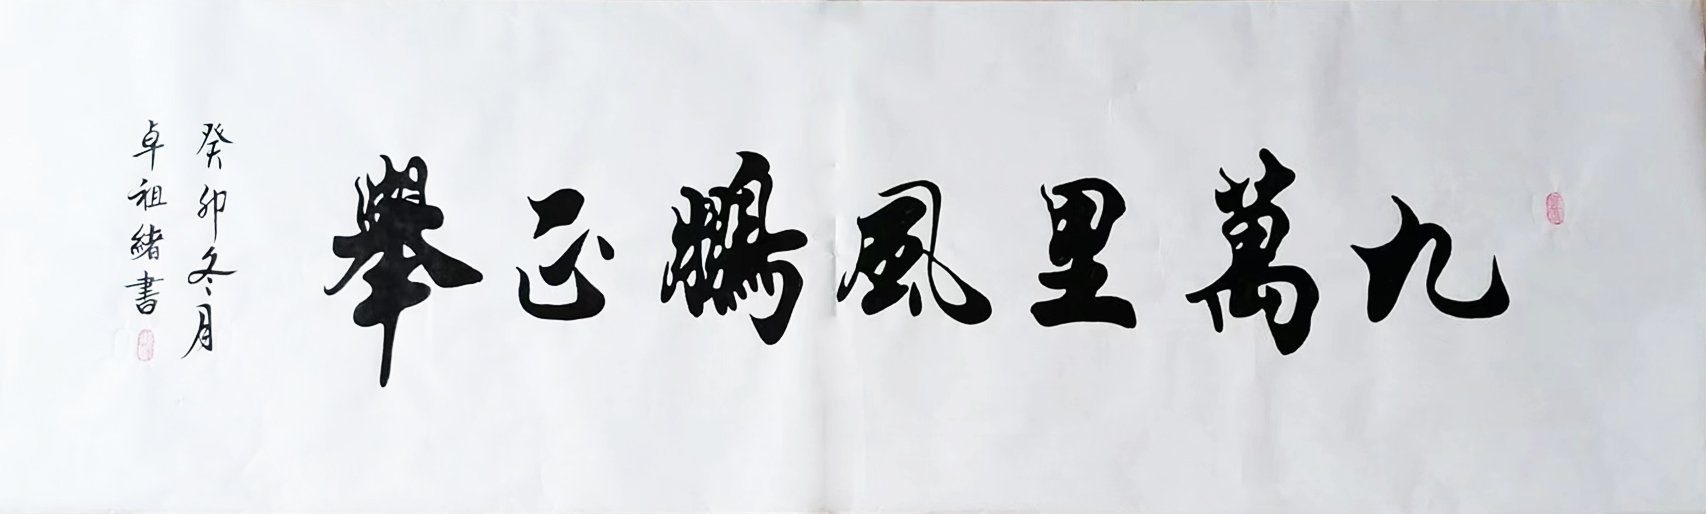 九萬里風鵬正舉
癸卯冬月
卓祖緒書